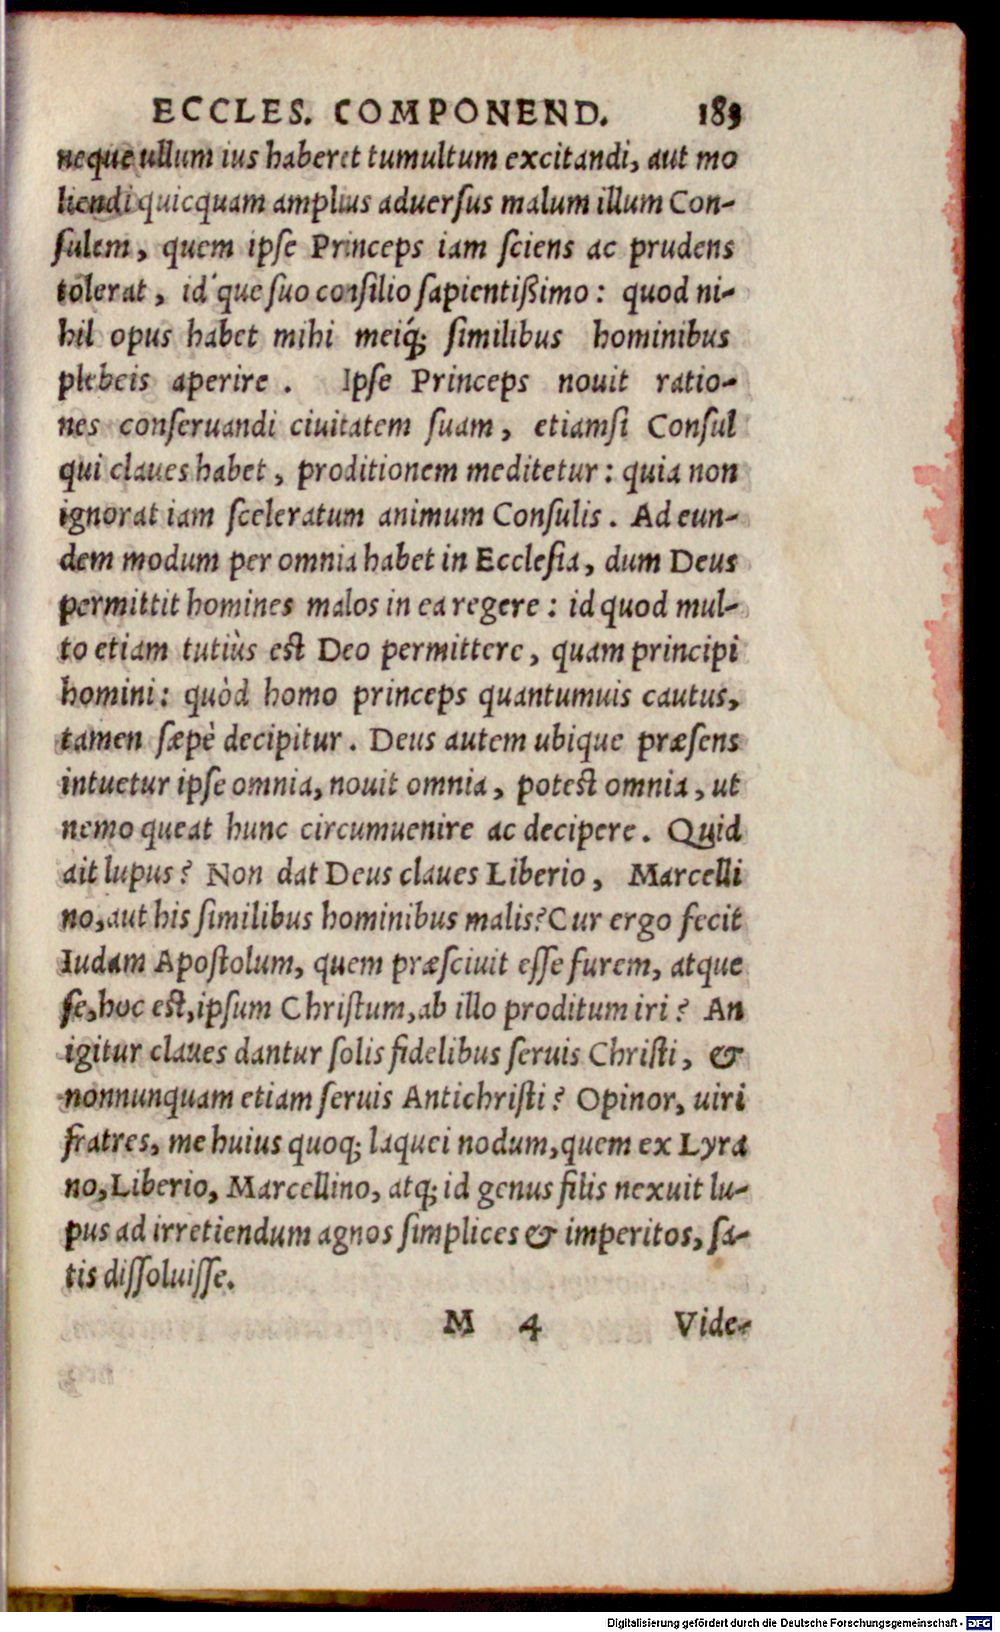 ECCLES. COMPONEND. 183
neque ullum ius haberet tumultum excitandi, aut mo
liendi quicquam amplius aduerſus malum illum Con-
ſulem, quem ipſe Princeps iam ſciens ac prudens
tolerat, id´que ſuo conſilio ſapientißimo: quod ni-
hil opus habet mihi meiq́; ſimilibus hominibus
plebeis aperire. Ipſe Princeps nouit ratio-
nes conſeruandi ciuitatem ſuam, etiamſi Conſul
qui claues habet, proditionem meditetur: quia non
ignorat iam ſceleratum animum Conſulis. Ad eun-
dem modum per omnia habet in Eccleſia, dum Deus
permittit homines malos in ea regere: id quod mul-
to etiam tutiùs est Deo permittere, quam principi
homini: quòd homo princeps quantumuis cautus,
tamen ſæpè decipitur. Deus autem ubique præſens
intuetur ipſe omnia, nouit omnia, potest omnia, ut
nemo queat hunc circumuenire ac decipere. Quid
ait lupus? Non dat Deus claues Liberio, Marcelli
no, aut his ſimilibus hominibus malis? Cur ergo fecit
Iudam Apoſtolum, quem præſciuit eſſe furem, atque
ſe, hoc est, ipſum Chriſtum, ab illo proditum iri? An
igitur claues dantur ſolis fidelibus ſeruis Chriſti, &
nonnunquam etiam ſeruis Antichriſti? Opinor, uiri
fratres, me huius quoq; laquei nodum, quem ex Lyra
no, Liberio, Marcellino, atq; id genus filis nexuit lu-
pus ad irretiendum agnos ſimplices & imperitos, ſa-
tis diſſoluiſſe.
M 4 Vide-
Digitalisierung gefördert durch die Deutsche Forschungsgemeinschaft - DFG